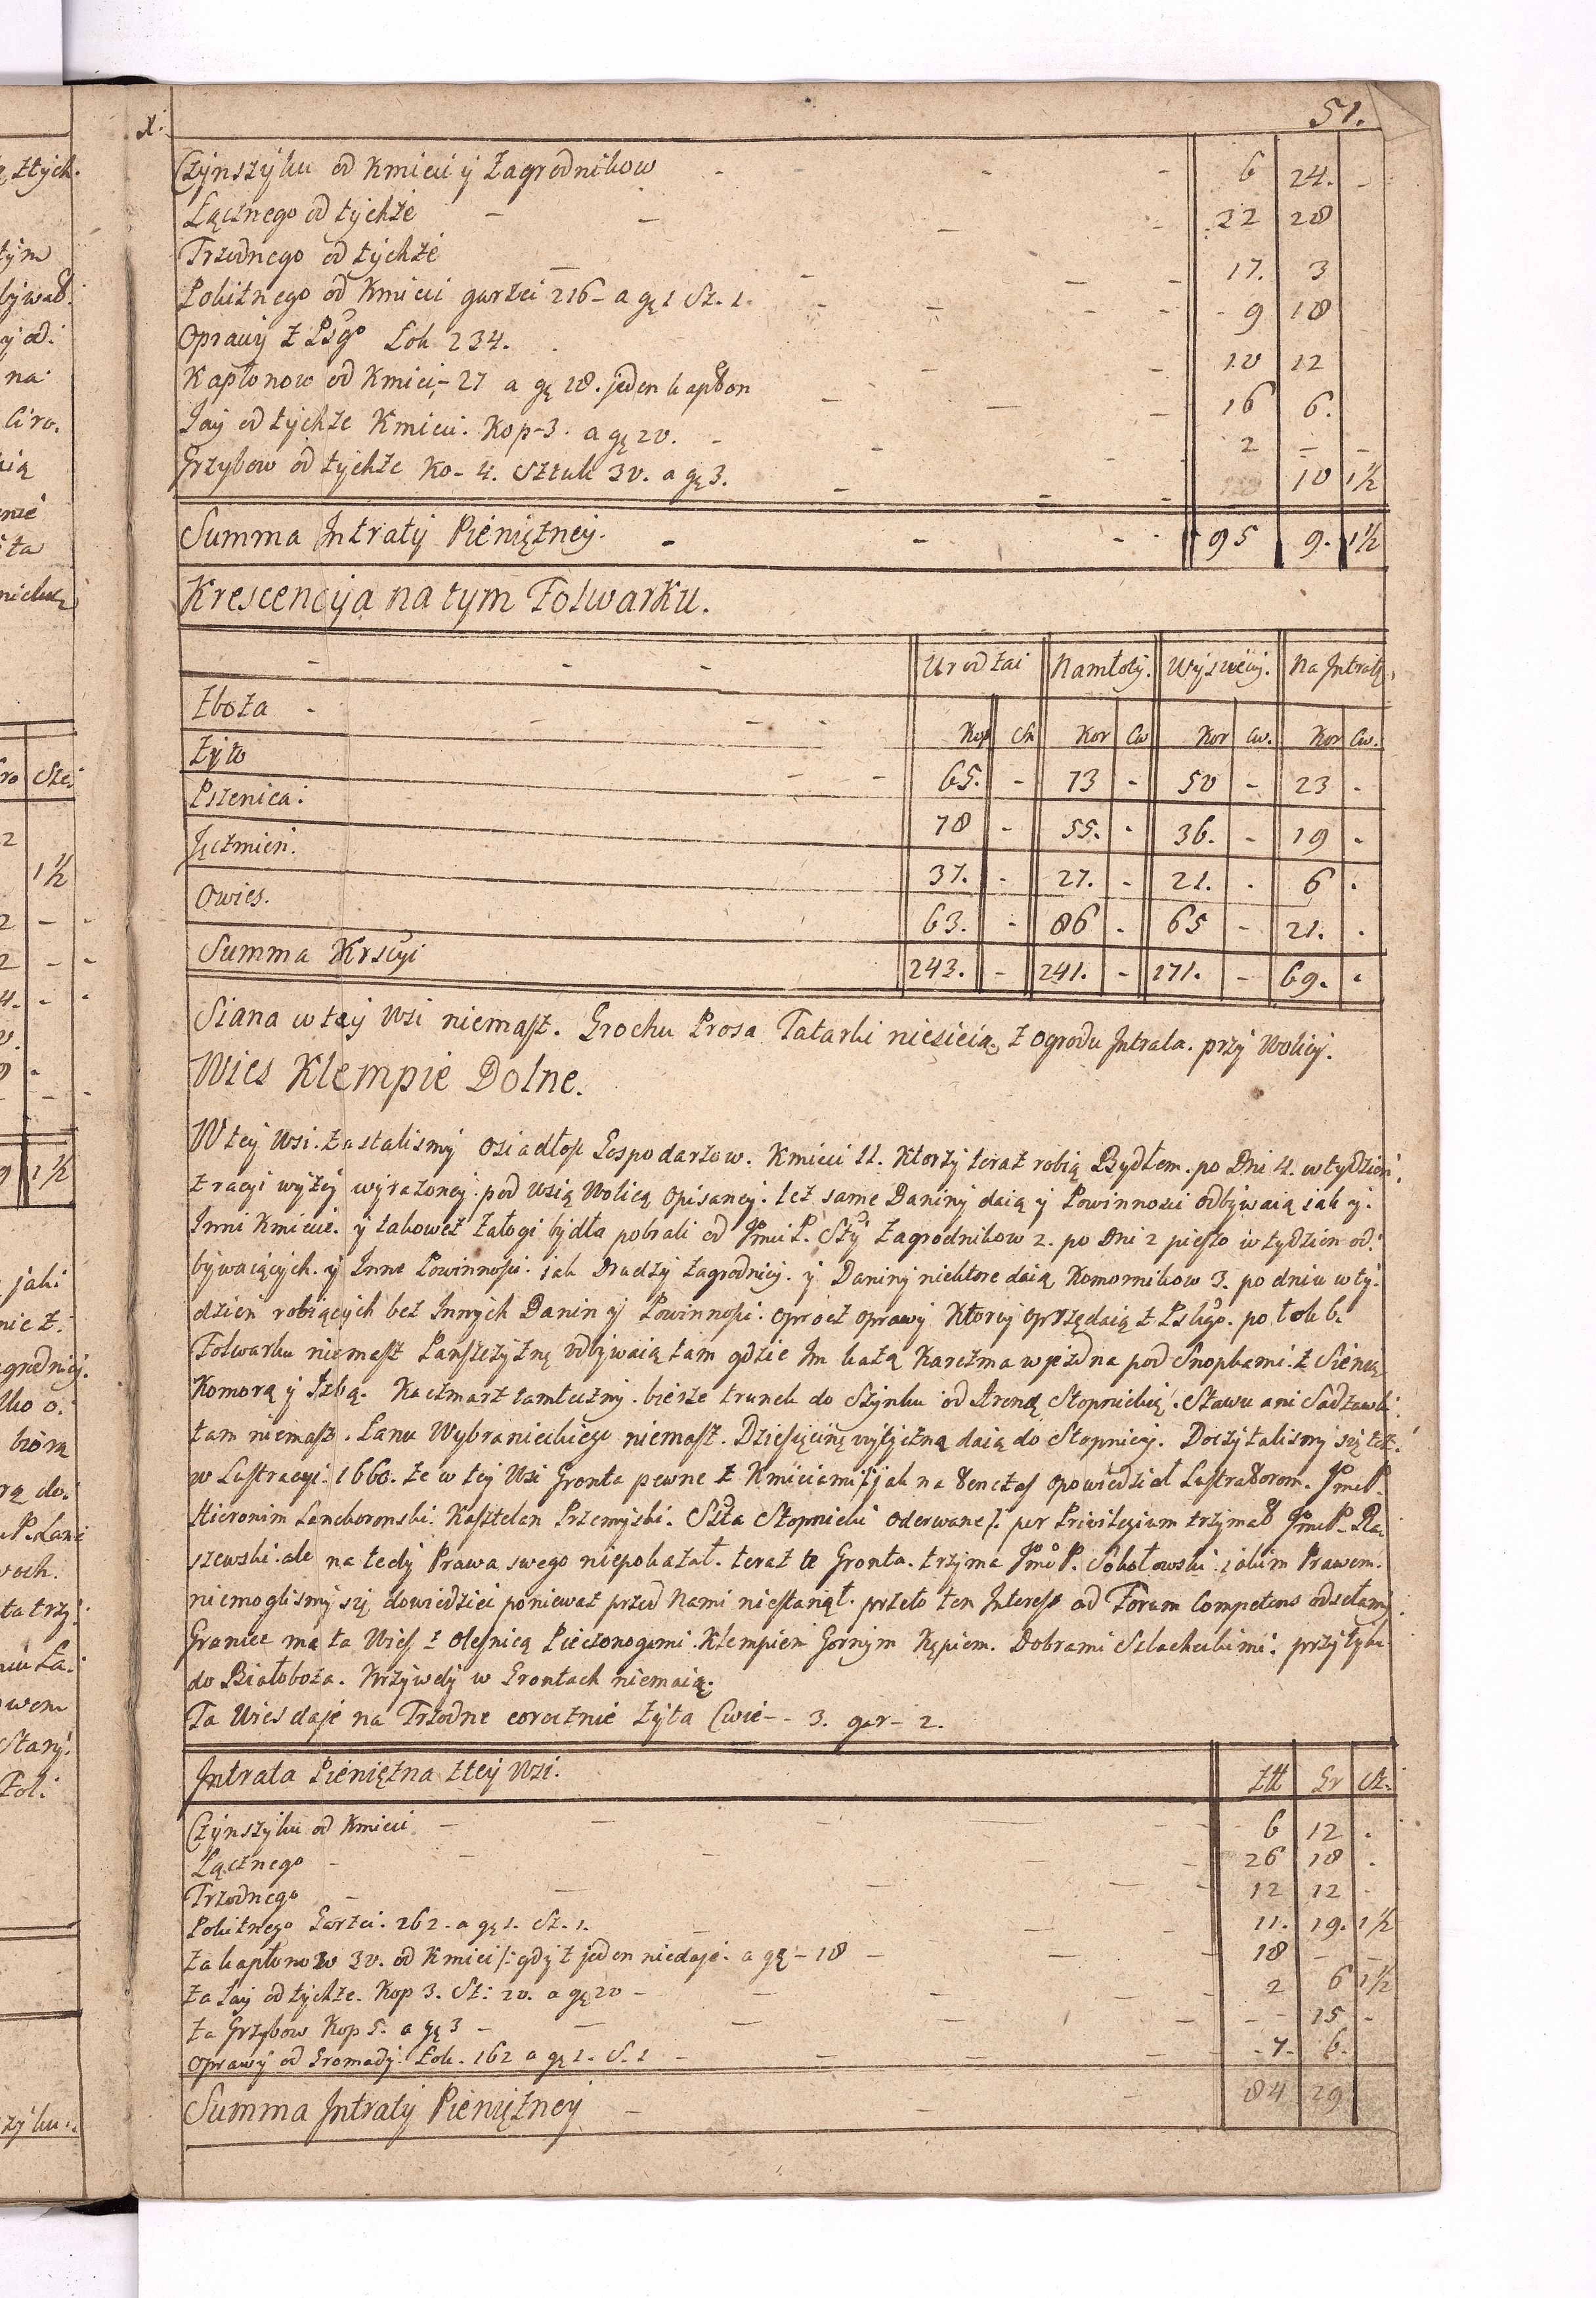 51.
Czynszyku od Kmieci y Zagrodnikow - - - 6 24. -
Łącznego od tychże - - - 22 28
Trzodnego od tychże - - - 17. 3
Pokitnego od Kmieci garści 216 - a gę 1 Sz. 1. - - - 9 18
Oprawy z Psgo Łok 234. 10 12
Kapłonow od Kmieci - 27 a gę 18. jeden kapłon - - - 16 6.
Jay od tychże Kmieci. Kop - 3. a gę 20. - - - 2 - -
Grzybow od tychże Ko - 4. Sztuk 30. a gę 3. - - - 10 1½
Summa Jntraty Pieniężney. - - - 95 9. 1½
Krescencyja na tym Folwarku.
Urodzai Namłoty. Wysiewy. Na Jntratę.
Zboża - Kop Sn Kor Cw Kor Cw. Kor Cw.
Zyto 65. - 73 - 50 - 23 -
Pszenica: 78 - 55. - 36. - 19 -
Jęczmień. 37. - 27. - 21. - 6 -
Owies. 63. - 86 - 65 - 21. -
Summa Krscyi 243. - 241. - 171. - 69. -
Siana w tey Wsi niemasz. Grochu Prosa Tatarki niesieią, z Ogrodu Jntrata. przy Wolicy.
Wies Klempie Dolne.
W tey Wsi. zastalismy Osiadłosc Gospodarzow. Kmieci 11. Ktorzy teraz robią Bydłem. po Dni 4. w tydzień
z racyi wyżey wyrażoney pod Wsią Wolicą opisaney. też same Daniny daią y Powinnosci odbywaią jak y
Inni Kmiecie. y takowez Załogi bydła pobrali od Jmci P. Stty Zagrodnikow 2. po Dni 2 pieszo w tydzien od:
bywaiących. y Inne Powinnosci jak Drudzy Zagrodnicy. y Daniny niektore daią Komornikow 3. po dniu w ty:
dzień robiących bez Innych Danin y Powinnosci: oprócz oprawy Ktorey oprzędaią z Pskgo. po łok 6.
Folwarku niemasz Panszczyznę odbywaią tam gdzie Im każą Karczma wjezdna pod Snopkami. z Sienią
Komorą y Jzbą. Kaczmarz tamteczny bierze trunek do Szynku od Arendy Stopnickiey. Stawu ani Sadzawki
tam niemasz. Łanu Wybranieckiego niemasz. Dziesięcinę wytyczną daią do Stopnicy. Doczytalismy się też
w Lustracyi. 1660. że w tey Wsi Gronta pewne z Kmieciami /: jak na tenczas opowiedział Lustratorom. Jmci P.
Hieronim Lanckoronski. Kasztelan Przemyski. Stta Stopnicki oderwane /: per Privilegium trzymał Jmci P. Ra:
szewski. ale na tedy Prawa swego niepokazał. teraz te Gronta. trzyma Jmc P. Sokołowski jakim Prawem.
niemoglismy się dowiedzieć poniewaz przed Nami niestanął. przeto ten Interess ad Forum Competens odsełamy.
Granice ma ta Wies z Olesnicą Pieczonogami. Klempiem Gornym Kępiem. Dobrami Szlacheckimi. przytyka
do Białoboża. Krzywdy w Grontach niemaią.
Ta Wies daje na Trzodne corocznie Zyta Cwie - - 3. gar - 2.
Jntrata Pieniężna z tey Wsi. Ztt Gr Sz.
Czynszyku od Kmieci - - - 6 12 .
Łącznego - - - 26 18 .
Trzodnego - - - 12 12 -
Pokitnego Garści. 262. a gę 1. Sz. 1. - 11. 19. 1½
Za kapłonow 30. od Kmieci /: gdyż jeden niedaje. a gę - 18 - - 18 - -
Za Jay od tychże. Kop 3. Sz: 20. a gę 20 - - - 2 6 1½
Za Grzybow Kop 5. a gę 3 - - - - 15 -
Oprawy od Gromady. Łok. 162 a gę 1. S. 1 - - - 7. 6.
Summa Jntraty Pieniężney - - - 84 29